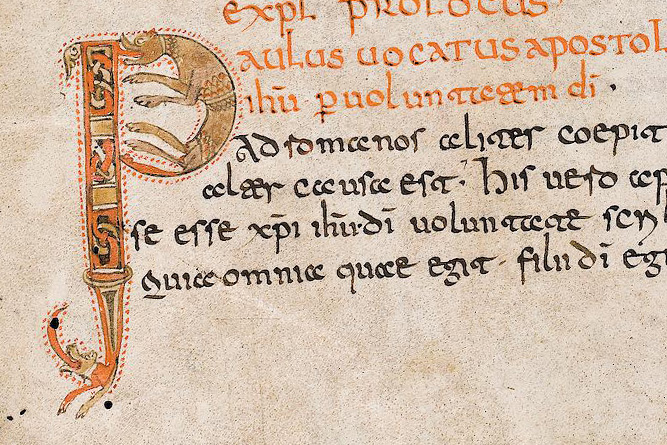 expl prologus
Paulus uocatus apostol
ihu puoluntatem di .
Ad romanos aliter coepit
alaer causa est. his uero
se esse xpi ihu·di uoluntate
Quia omnia quae egit. filii di